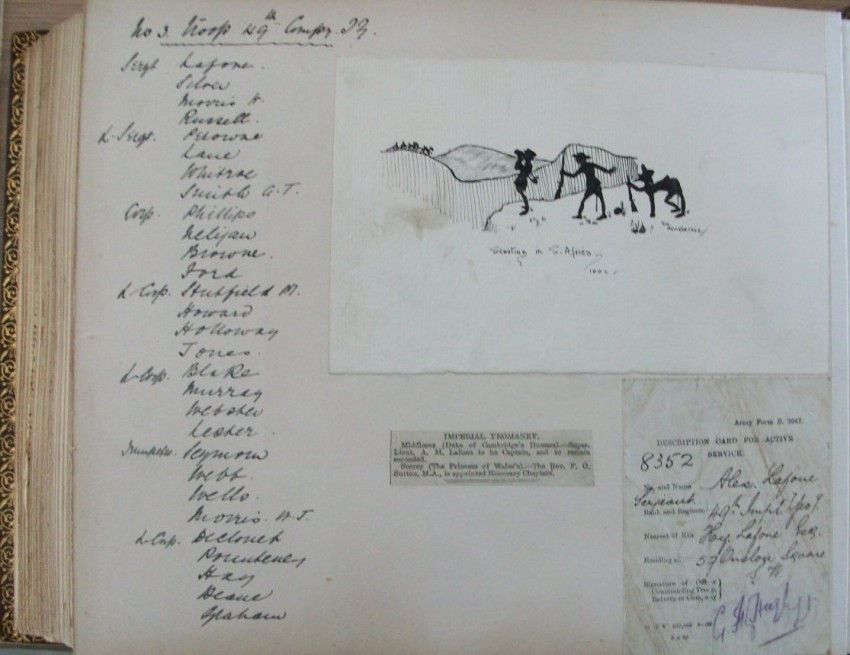 No 3. Troop 49th Compy. I.Y.
Sergt Lafone.
Silver
Morris H
Russell.
L-Sergt. Perowne
Lane
Whitroe
Smith A.T.
Corp. Phillips
Neligan
Browne.
Ford
L-Corp. Stutfield M.
Howard
Holloway
Jones.
L-Corp. Blake
Murray
Webster
Lester
Trumpeter. Seymour
Webb.
Wells.
Morris. W.J.
L-Corp.
Pounteney
Hay
Deane
Graham
Scouting in S. Africa
1902.
IMPERIAL YEOMANRY.
Middlesex (Duke of Cambridge's Hussars).—Super.
Lieut. A. M. Lafone to be Captain, and to remain
seconded.
Surrey (The Princess of Wales's).—The Rev. F. O.
Sutton, M.A., is appointed Honorary Chaplain.
Army Form B. 2067.
DESCRIPTION CARD FOR ACTIVE
SERVICE.
8352
No. and Name Alex. Lafone
Sergeant
Rank and Regiment 49th Impl Yeoy
Nearest of Kin Hy. Lafone Esq.
Residing at 59 Onslow Square
S W
Signature of Officer
Commanding Troop
Battery or Company